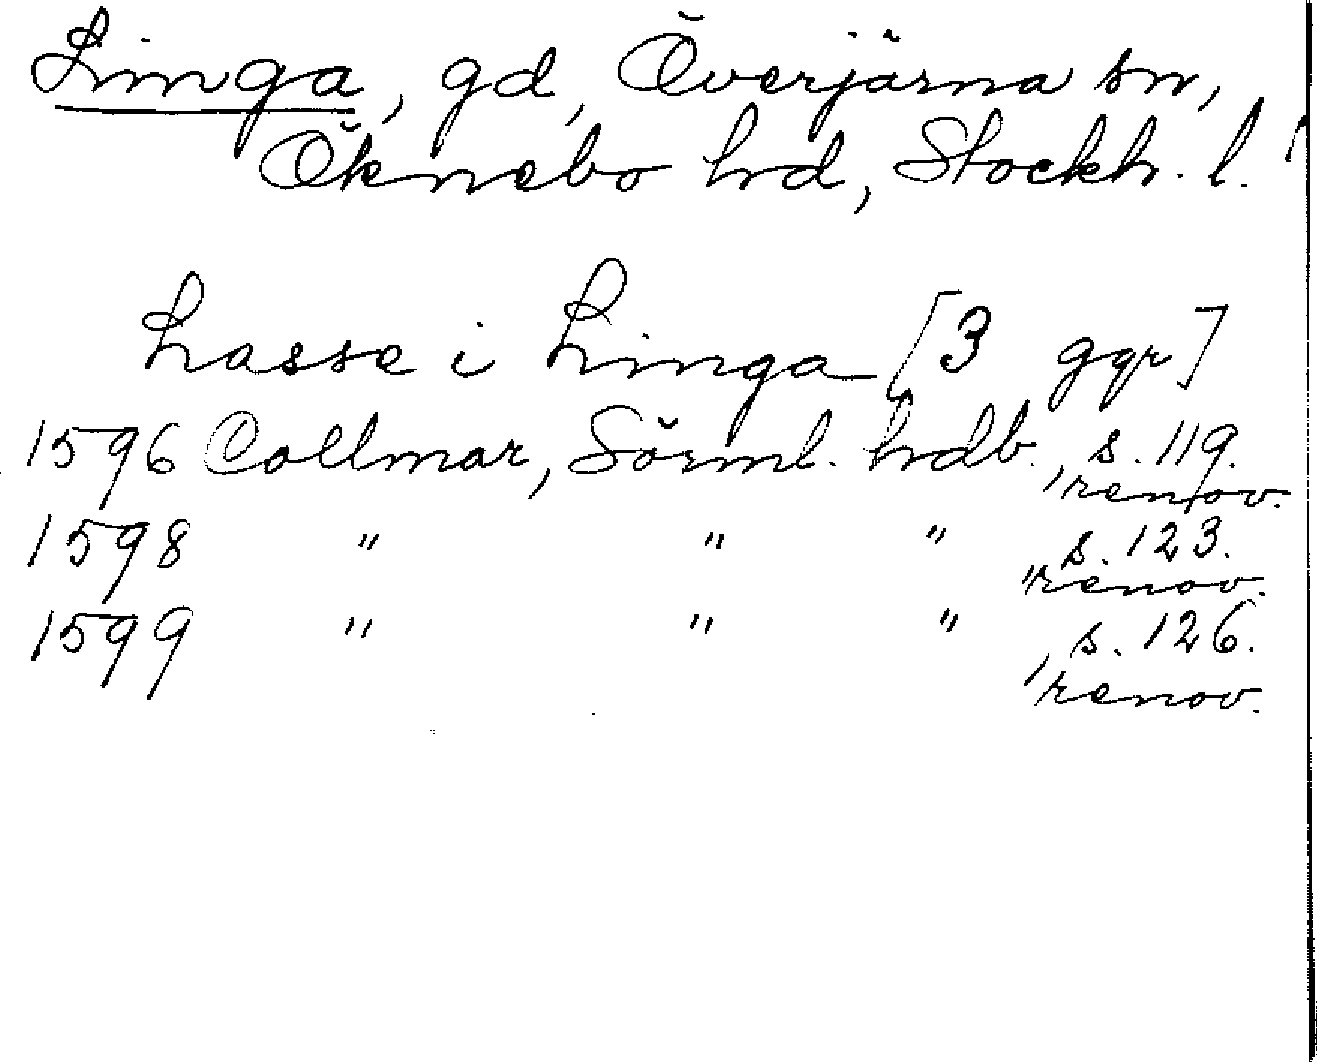 Linga, gd, Överjärna sn,
Öknebo hrd, Stockh. l.
Lasse i Linga [3 ggr]
1596 Collmar, Sörml. hrdb., s. 119.
renov.
1598 " " " s. 123.
" renov.
1599 " " " , s. 126.
renov.